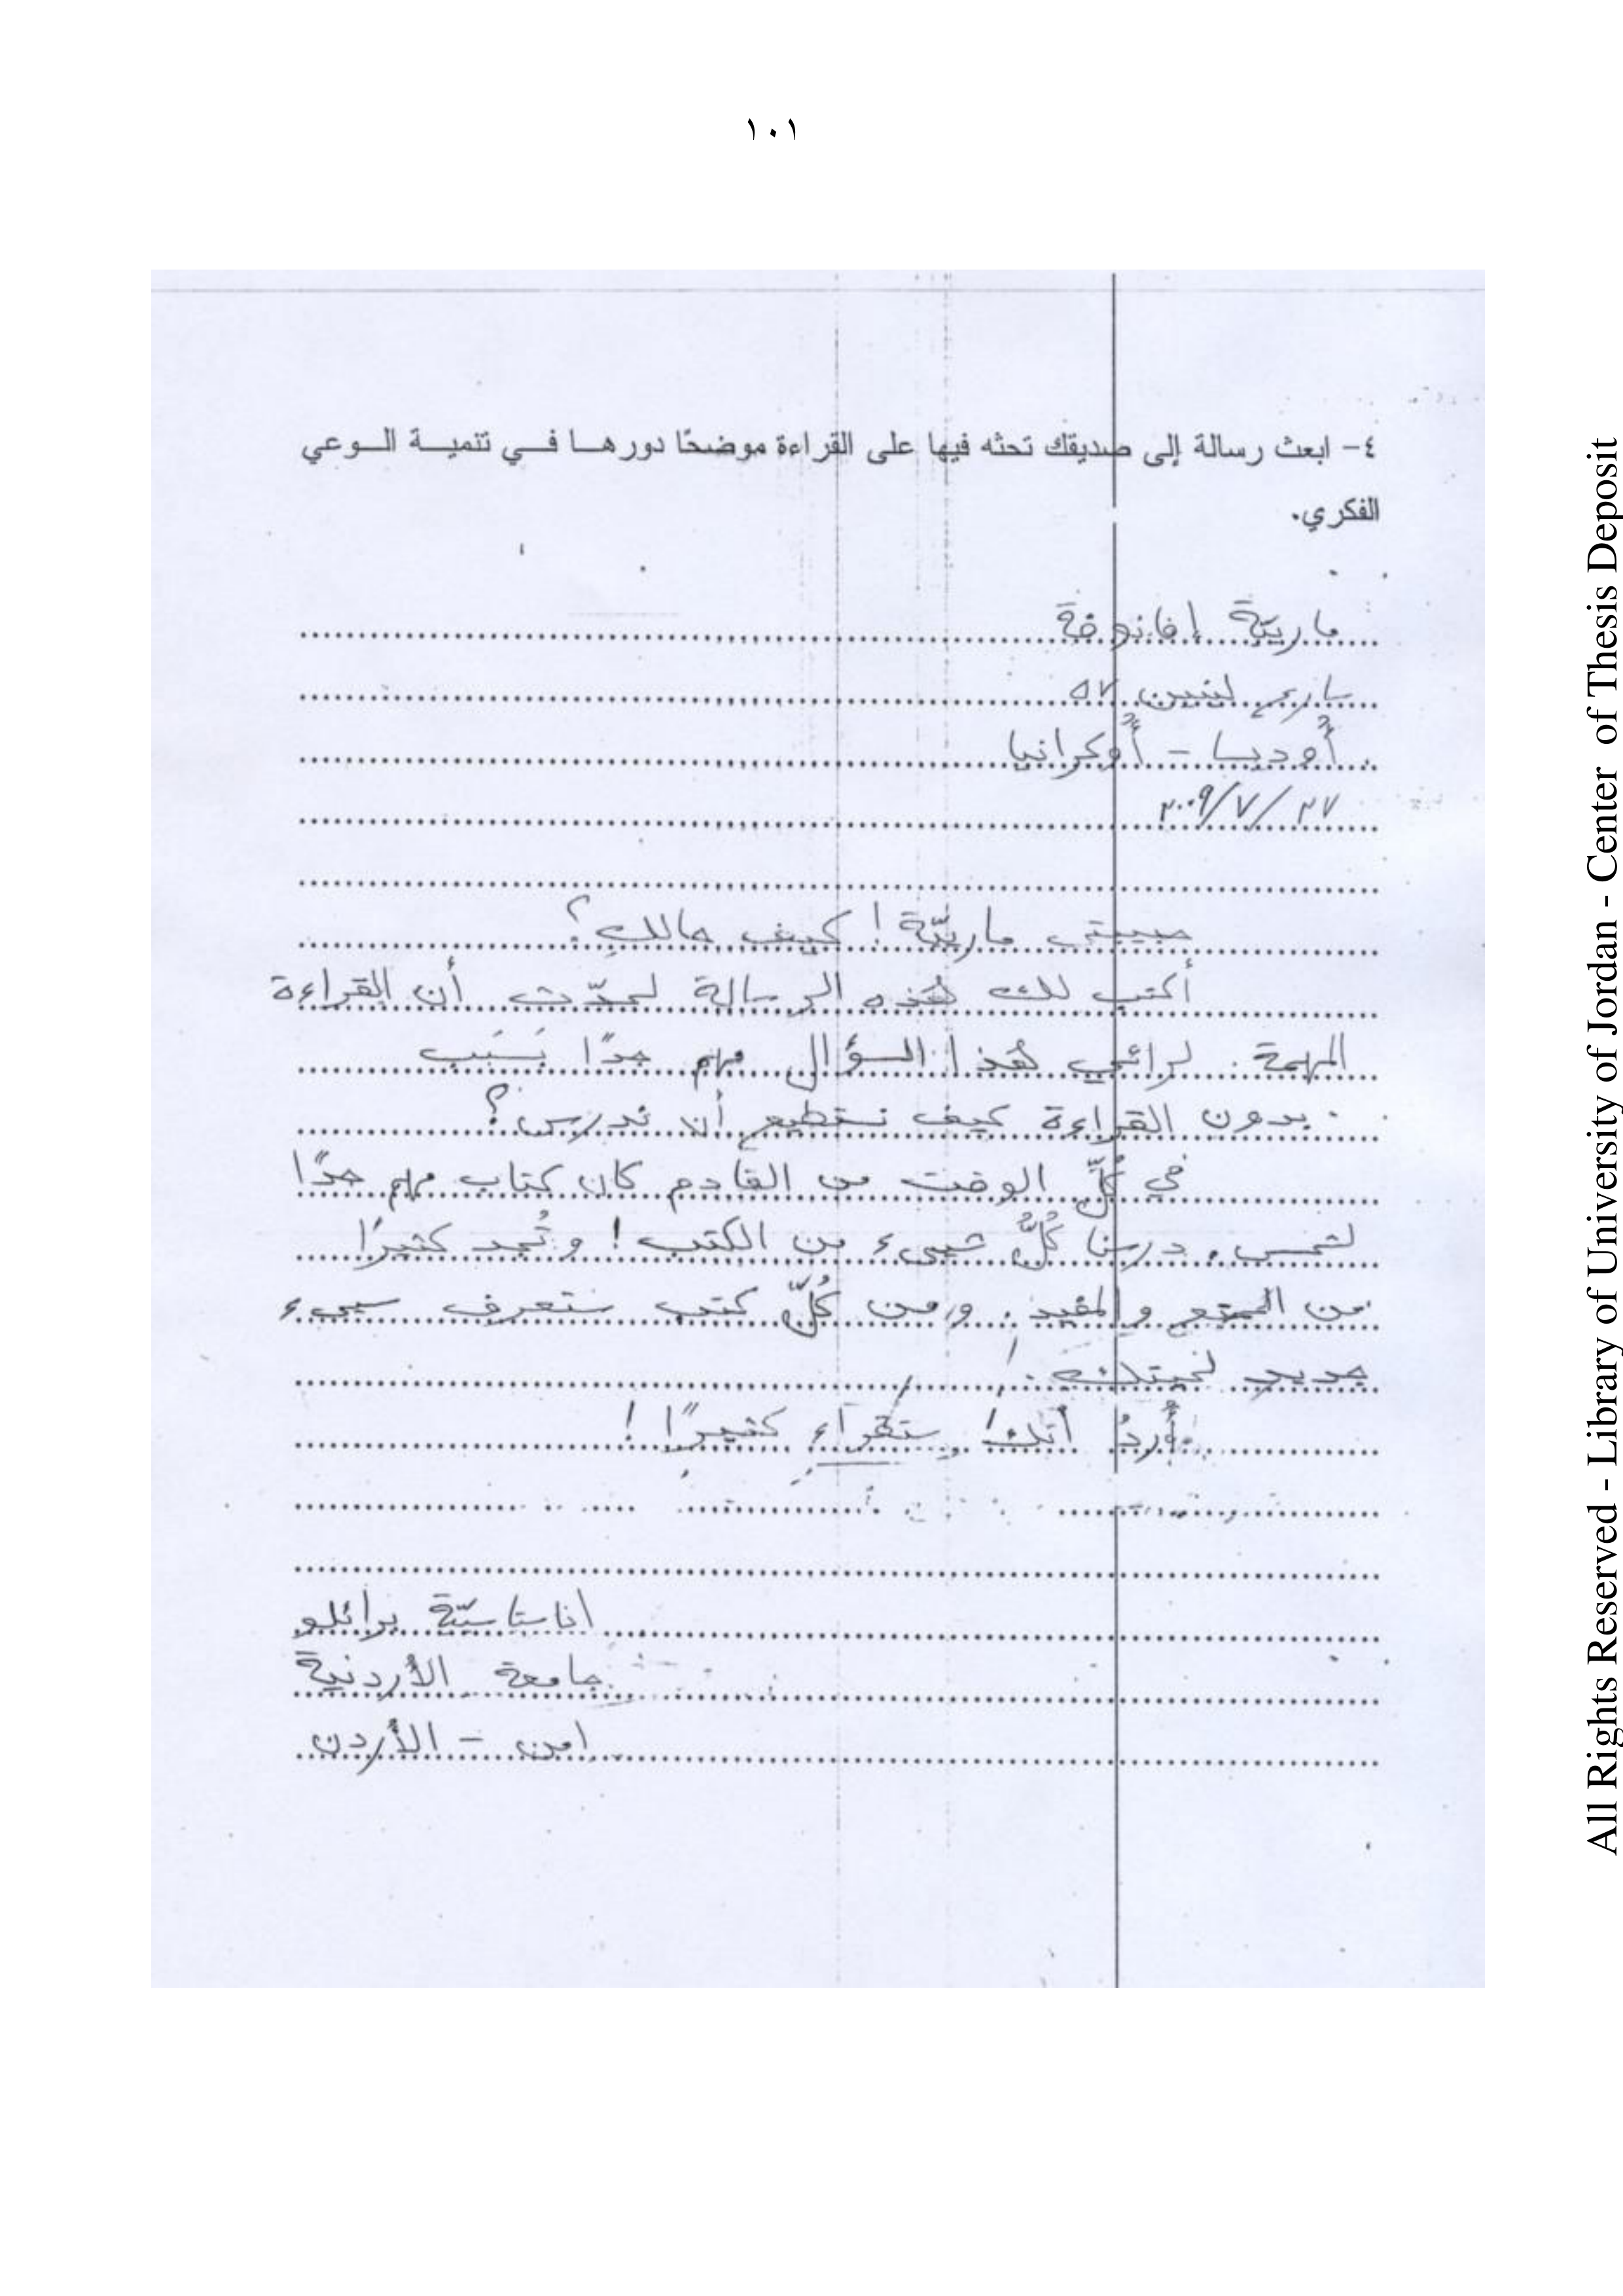 ١٠١
٤- ابعث رسالة إلى صديقك تحثه فيها على القراءة موضحًا دورها في تنمية الوعي
الفكري.
ماريّة إفانوفة
لينين ٥٧
أوديسا - أُوكرانيا
٢٧/٧/٢٠٠٩
حبيبتي ماريّة! كيف حالكِ؟
أكتب لك هٰذه الرسالة لحدّث أن القراءة
المهمة. لرائي هٰذا السؤال مهم جدًا بَسَبب
بدون القراءة كيف نستطيع أن ندرس؟
في كُلّ الوقت من القادم كان كتاب مهم جدًا
درسنا كُلُّ شيىء من الكتب! و تُجد كثيرًا
من الممتع والمفيد. ومن كُلّ كتب ستعرف سيىء
جديد
أُردُ أنك ستقراء كثيرًا!
اناستاسيّة برائلو
جامعة الأردنية
امن - الأردن
All Rights Reserved - Library of University of Jordan - Center of Thesis Deposit